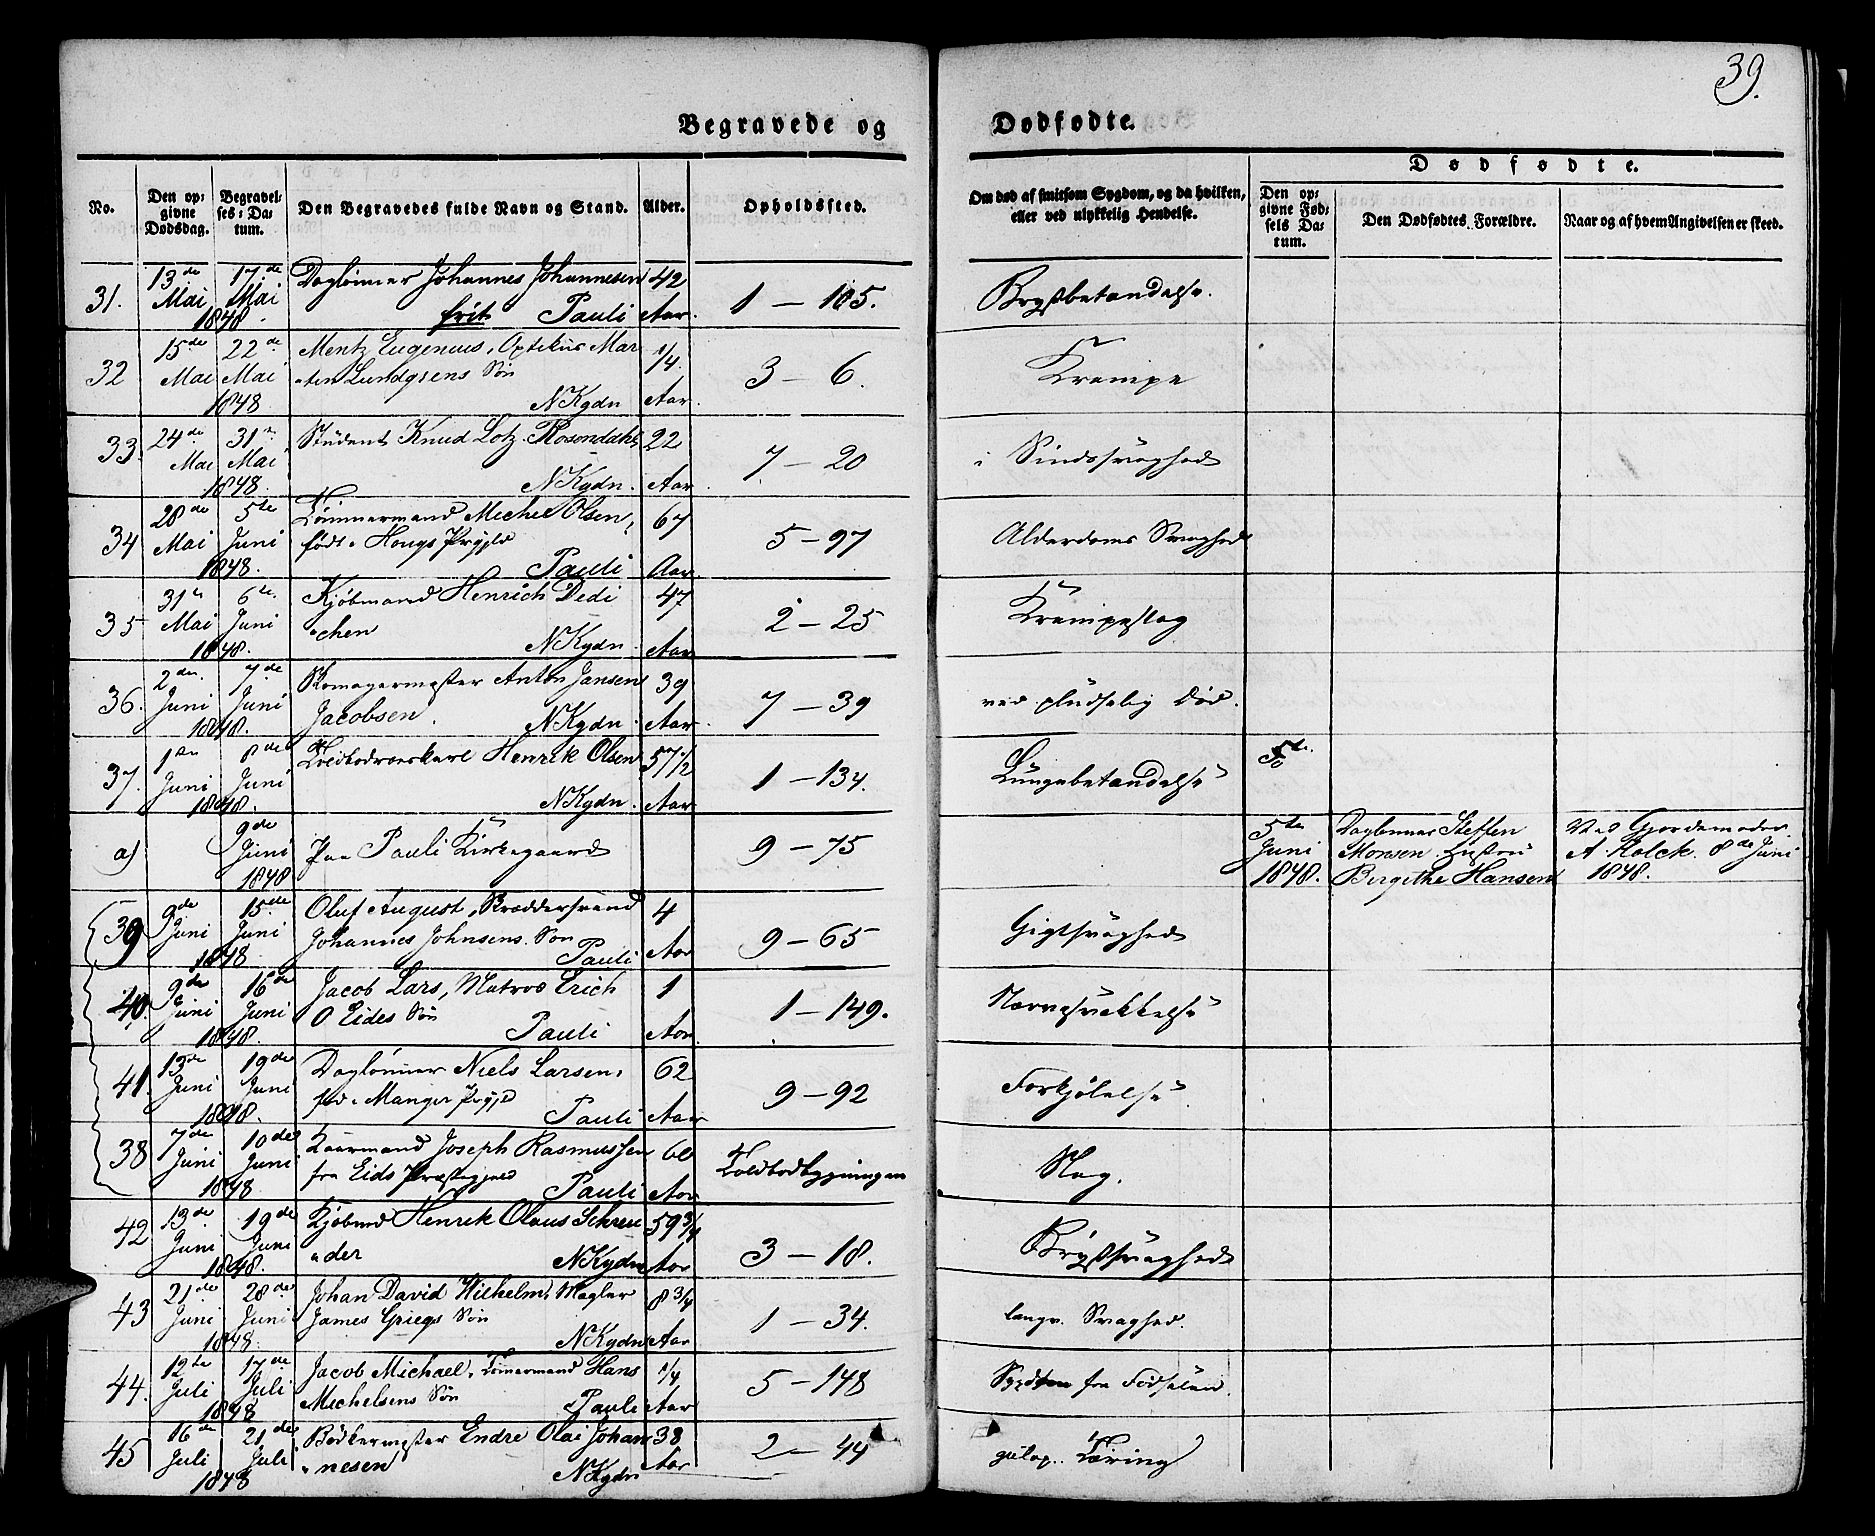 39.
Begravede og Dødfødte.
No.
Den opgivne Dødsdag.
Begravelses-Datum.
Den Begravedes fulde Navn og Stand.
Alder.
Opholdssted.
Om død af smitsom Sygdom, og da hvilken, eller ved ulykkelig Hendelse.
Dødfødte.
Den opgivne Fødsels Datum.
Den Dødfødtes Forældre.
Naar og af hvem Angivelsen er skeed.
31. 13de Mai 17de Mai 1848. Daglønner Johannes Johannesen 42 Aar. 1 – 105. Brystbetændelse.
frit Pauli
32 15de Mai 22de Mai 1848 Mentz Eugenius, Optikus Mar 1/4 Aar. 3 – 6. Krampe
"ten Lundgrens Søn
NKgdn
33. 24de Mai 31te Mai 1848. Student Knud Lotz Rosendahl, 22 Aar. 7 – 20 i Sindssvaghed
NKgdn.
34 28de Mai 5te Juni 1848. Tømmermand Michel Olsen, 67 Aar. 5 – 97 Alderdoms Svaghed
født i Hougs Prgjld
Pauli
35 31te Mai 6te Juni 1848. Kjøbmand Henrich Dedi 47 Aar 2 – 25 Krampeslag
"chen
NKgdn.
36. 2den Juni 7de Juni 1848. Komagermester Anton Jansen 39 Aar. 7 – 39 ved pludselig Død.
Jacobsen. NKgdn.
37. 1ste Juni 8de Juni 1848. Toldbodvæsskarl Henrik Olsen 57 1/2 Aar 1 – 134. Lungebetændelse 5te
NKgdn.
a) 9de Juni 1848 paa Pauli Kirkegaard 9 – 75 5te Juni 1848. Daglønner Steffen Monsen Hustru Birgithe Hansen Ved Gjordemoder A. Holck. 8de Juni 1848.
39 9de Juni 15de Juni 1848 Oluf August, Bræddersvend 4 Aar 9 – 65 Gigtsvaghed
Johannes Johnsens Søn
Pauli
40. 9de Juni 16de Juni 1848. Jacob Lars, Matros Erich 1 Aar 1 – 149. Nervesvækkelse
O Eides Søn Pauli
41. 13de Juni 19de Juni 1848. Daglønner Niels Larsen, 62 Aar 9 – 92 Forkjølelse.
fød i Manger Prgjld
Pauli
38 7de Juni 10de Juni 1848 Kaarmand Joseph Rasmussen 60 Aar Toldbodbygningen Slag.
fra Eids Præstegjeld
Pauli
42 13de Juni 19de Juni 1848. Kjøbmd Henrik Olaus Schreu 59 3/4 Aar 3 – 18. Brystsvaghed
"der NKgdn
43 21de Juni 28de Juni 1848. Johan David Wilhelm, Mægler 8 3/4 Aar 1 – 34. langv. Svaghed.
James Griegs Søn
NKgdn
44. 12te Juli 17de Juli 1848 Jacob Michael, Tømermand Hans 1/4 Aar 5 – 148 Sygdom fra Fødselen.
Michelsens Søn Pauli
45 16de Juli 21de Juli 1848 Bødkermester Endre Olai Johan 38 Aar 2 – 44 galop. Tæring
"nesen NKgdn